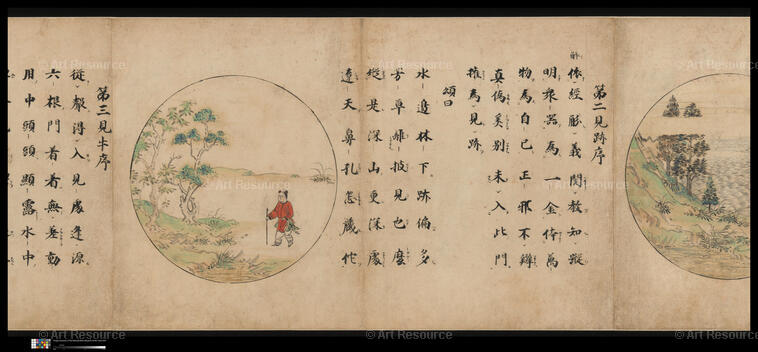 第二見跡序
依經解義閲教知蹤
明衆器為一金体萬
物為自己正邪不辨
真偽奚別未入此門
權為見跡
頌曰
水邊林下跡偏多
芳草離披見也麼
縱是深山更深處
遼天鼻孔怎藏佗
第三見牛序
從聲得入見處逢源
六根門着着無差動
用中頭頭顯露水中
© Art Resource
© Art Resource
© Art Resource
© Art Resource
© Art Resource
© Art Resource
© Art Resource
© Art Resource